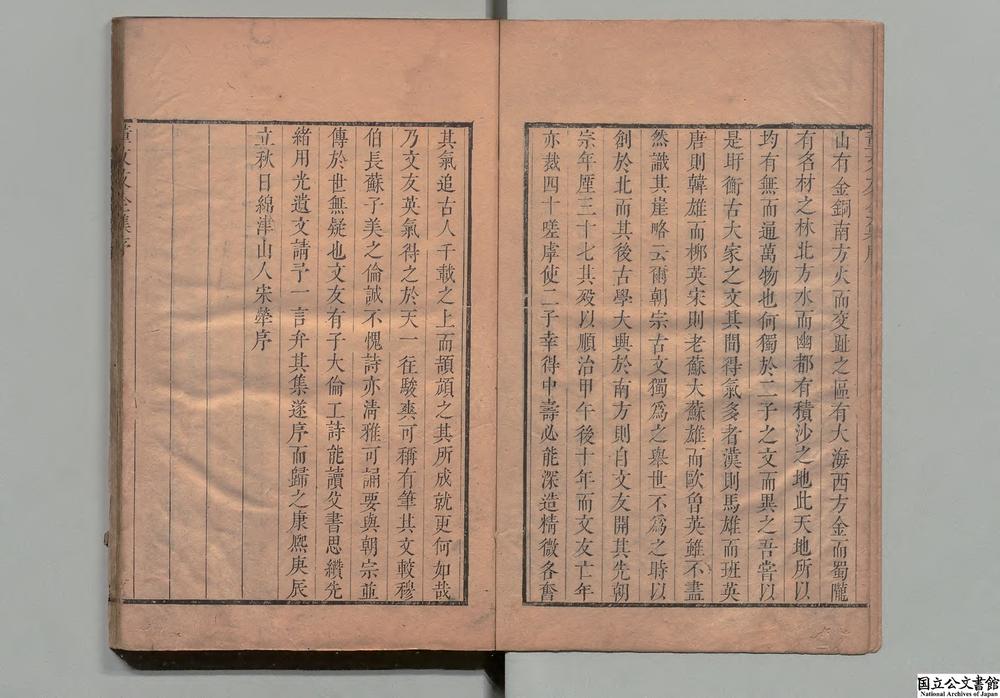 山有金銅南方火而交趾之區有大海西方金而蜀隴
有名材之林北方水而幽都有積沙之地此天地所以
均有無而通萬物也何獨於二子之文而異之吾嘗以
是盱衡古大家之文其間得氣多者漢則馬雄而班英
唐則韓雄而栁英宋則老蘇大蘇雄而歐曾英雖不盡
然識其崖略云爾朝宗古文獨爲之舉世不爲之時以
創於北而其後古學大興於南方則自文友開其先朝
宗年厪三十七其歿以順治甲午後十年而文友亡年
亦裁四十嗟虖使二子幸得中壽必能深造精微各奮
其氣追古人千載之上而頡頏之其所成就更何如哉
乃文友英氣得之於天一往駿爽可稱有筆其文較穆
伯長蘇子美之倫誠不愧詩亦淸雅可誦要與朝宗並
傳於世無疑也文友有子大倫工詩能讀父書思纘先
緒用光遺文請予一言弁其集遂序而歸之康熈庚辰
立秋日綿津山人宋犖序
董文友全集序
国立公文書館
National Archives of Japan